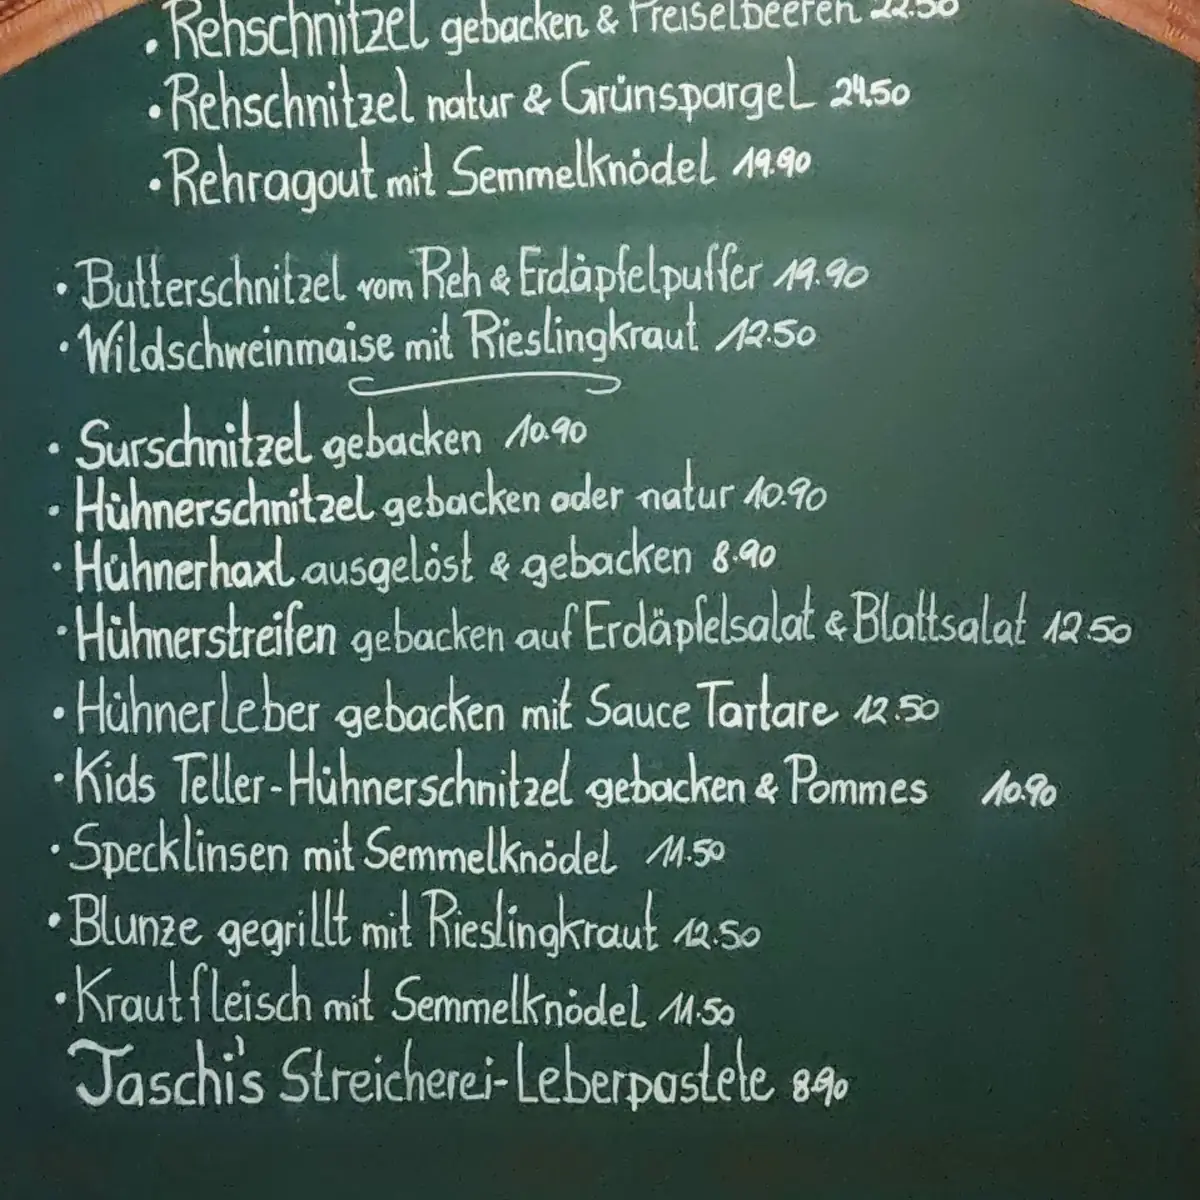 • Rehschnitzel gebacken & Preiselbeeren 22.50
• Rehschnitzel natur & Grünspargel 24.50
• Rehragout mit Semmelknödel 19.90
• Butterschnitzel vom Reh & Erdäpfelpuffer 19.90
• Wildschweinmaise mit Rieslingkraut 12.50
• Surschnitzel gebacken 10.90
• Hühnerschnitzel gebacken oder natur 10.90
• Hühnerhaxl ausgelöst & gebacken 8.90
• Hühnerstreifen gebacken auf Erdäpfelsalat & Blattsalat 12.50
• Hühnerleber gebacken mit Sauce Tartare 12.50
• Kids Teller-Hühnerschnitzel gebacken & Pommes 10.90
• Specklinsen mit Semmelknödel 11.50
• Blunze gegrillt mit Rieslingkraut 12.50
• Krautfleisch mit Semmelknödel 11.50
Jaschi's Streicherei-Leberpastete 8.90